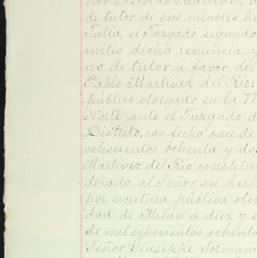 de tutor de sus menores he
Julia, el Juzgado segundo
mitio dicha sentencia y
go de tutor á favor del
Pablo Martinez del Rio:
público otorgado en la
Norte ante el Juzgado d
Distrito, con fecha once de
ochocientos ochenta y do
Martinez del Rio, constitu
derado al Señor su herm
por escritura pública otor
dad de Milán á diez y s
de mil ochocientos ochent
Señor Giuseppe Sormani